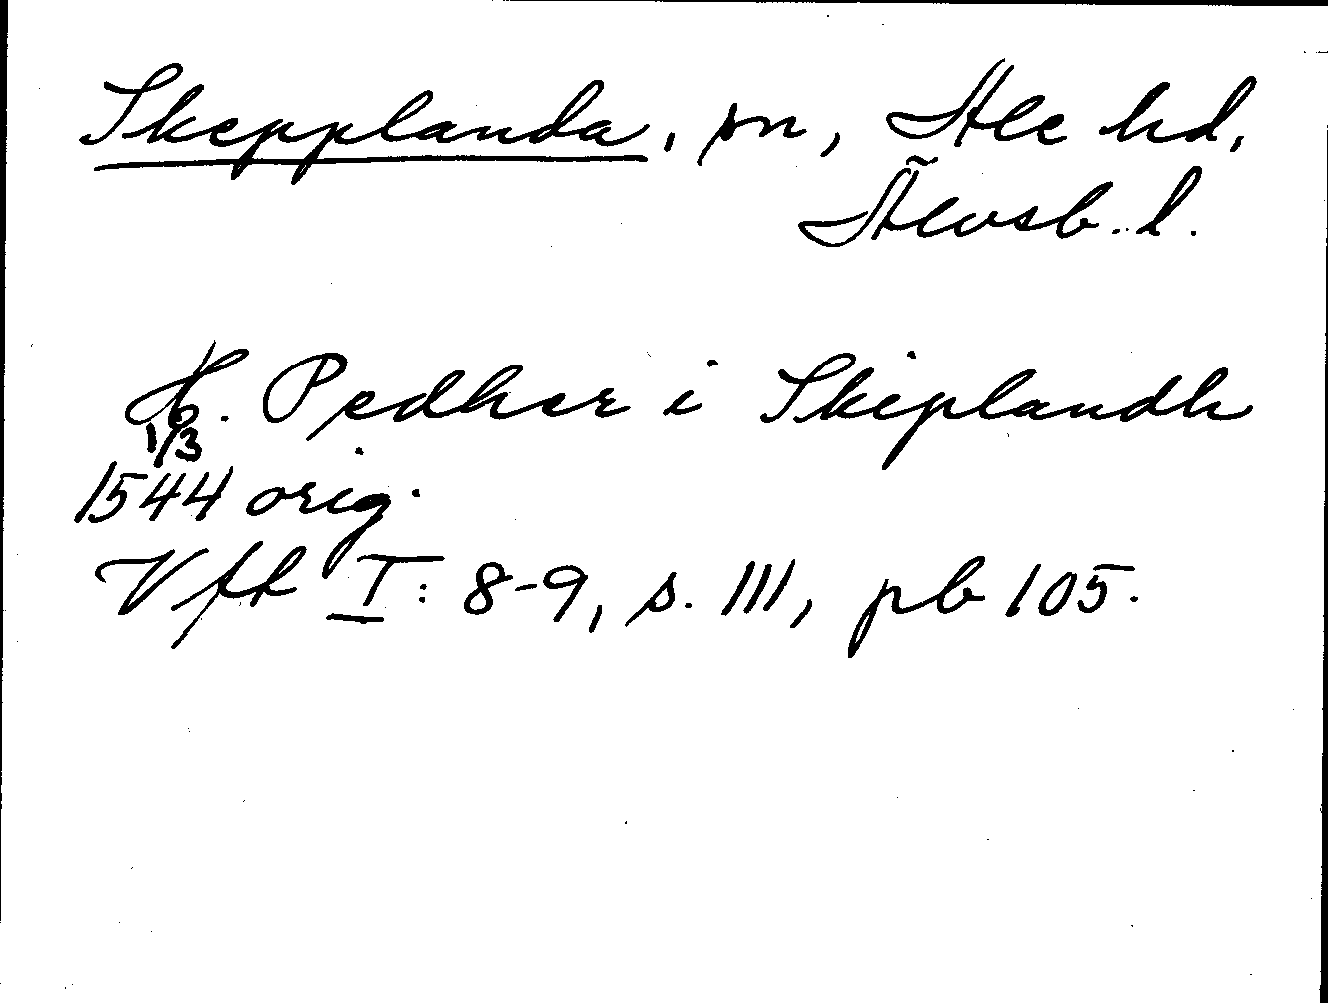 Skepplanda, sn, Ale hd,
Älvsb. l.
H. Pedher i Skiplandh
1/3
1544 orig.
Vft I: 8-9, s. 111, pb 105.